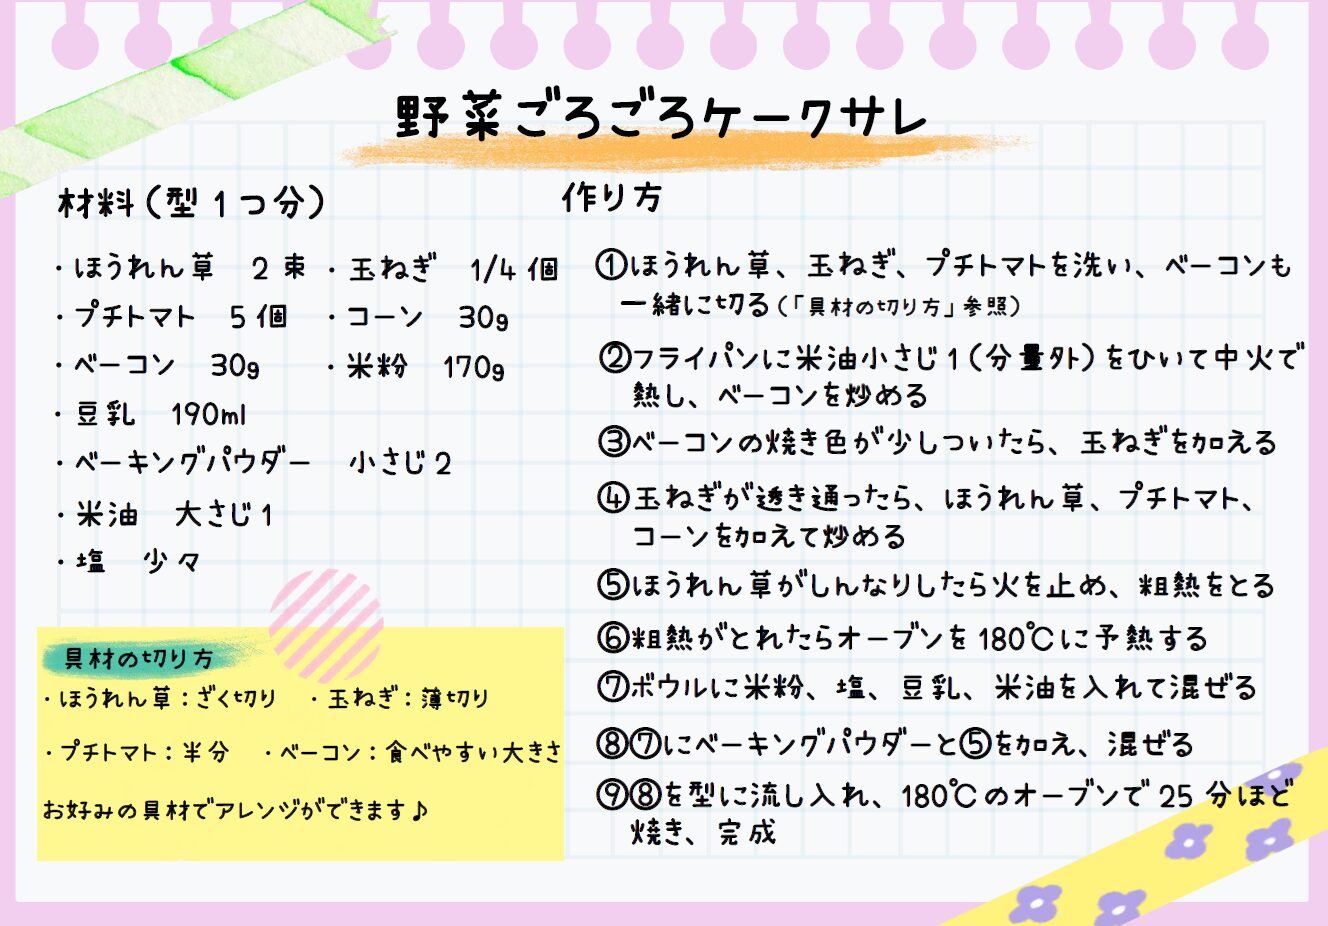 野菜ごろごろケークサレ
材料(型1つ分)
・ほうれん草 2束 ・玉ねぎ 1/4個
・プチトマト 5個 ・コーン 30g
・ベーコン 30g ・米粉 170g
・豆乳 190ml
・ベーキングパウダー 小さじ2
・米油 大さじ1
・塩 少々
具材の切り方
・ほうれん草:ざく切り ・玉ねぎ:薄切り
・プチトマト:半分 ・ベーコン:食べやすい大きさ
お好みの具材でアレンジができます♪
作り方
①ほうれん草、玉ねぎ、プチトマトを洗い、ベーコンも
一緒に切る(「具材の切り方」参照)
②フライパンに米油小さじ1(分量外)をひいて中火で
熱し、ベーコンを炒める
③ベーコンの焼き色が少しついたら、玉ねぎを加える
④玉ねぎが透き通ったら、ほうれん草、プチトマト、
コーンを加えて炒める
⑤ほうれん草がしんなりしたら火を止め、粗熱をとる
⑥粗熱がとれたらオーブンを180℃に予熱する
⑦ボウルに米粉、塩、豆乳、米油を入れて混ぜる
⑧⑦にベーキングパウダーと⑤を加え、混ぜる
⑨⑧を型に流し入れ、180℃のオーブンで25分ほど
焼き、完成